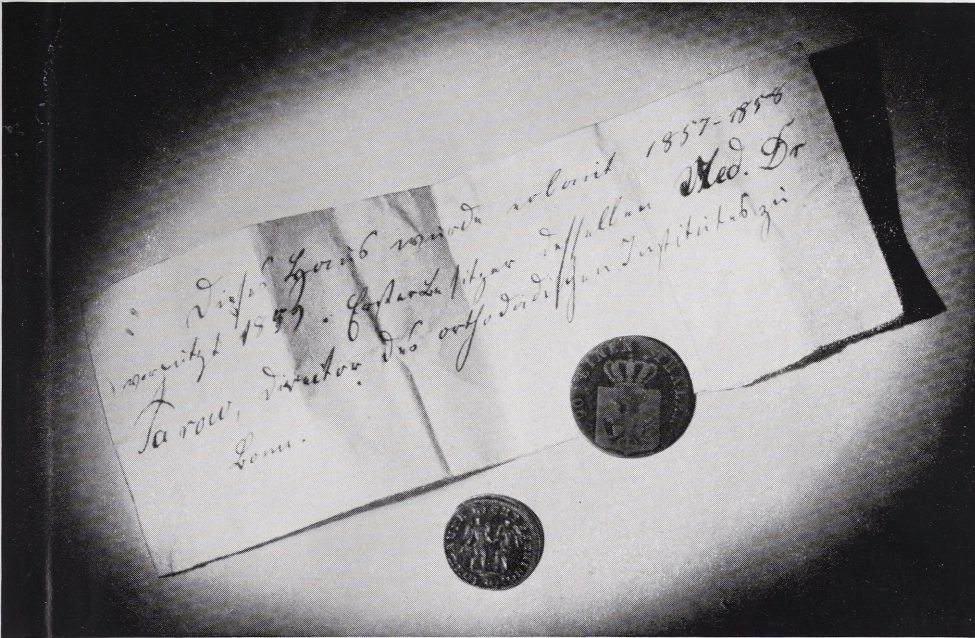 Dieses Haus wurde erbaut 1857-1858
verputzt 1859. Erster Besitzer desselben Med. Dr
Parow, Director des orthopädischen Institutes zu
Bonn.